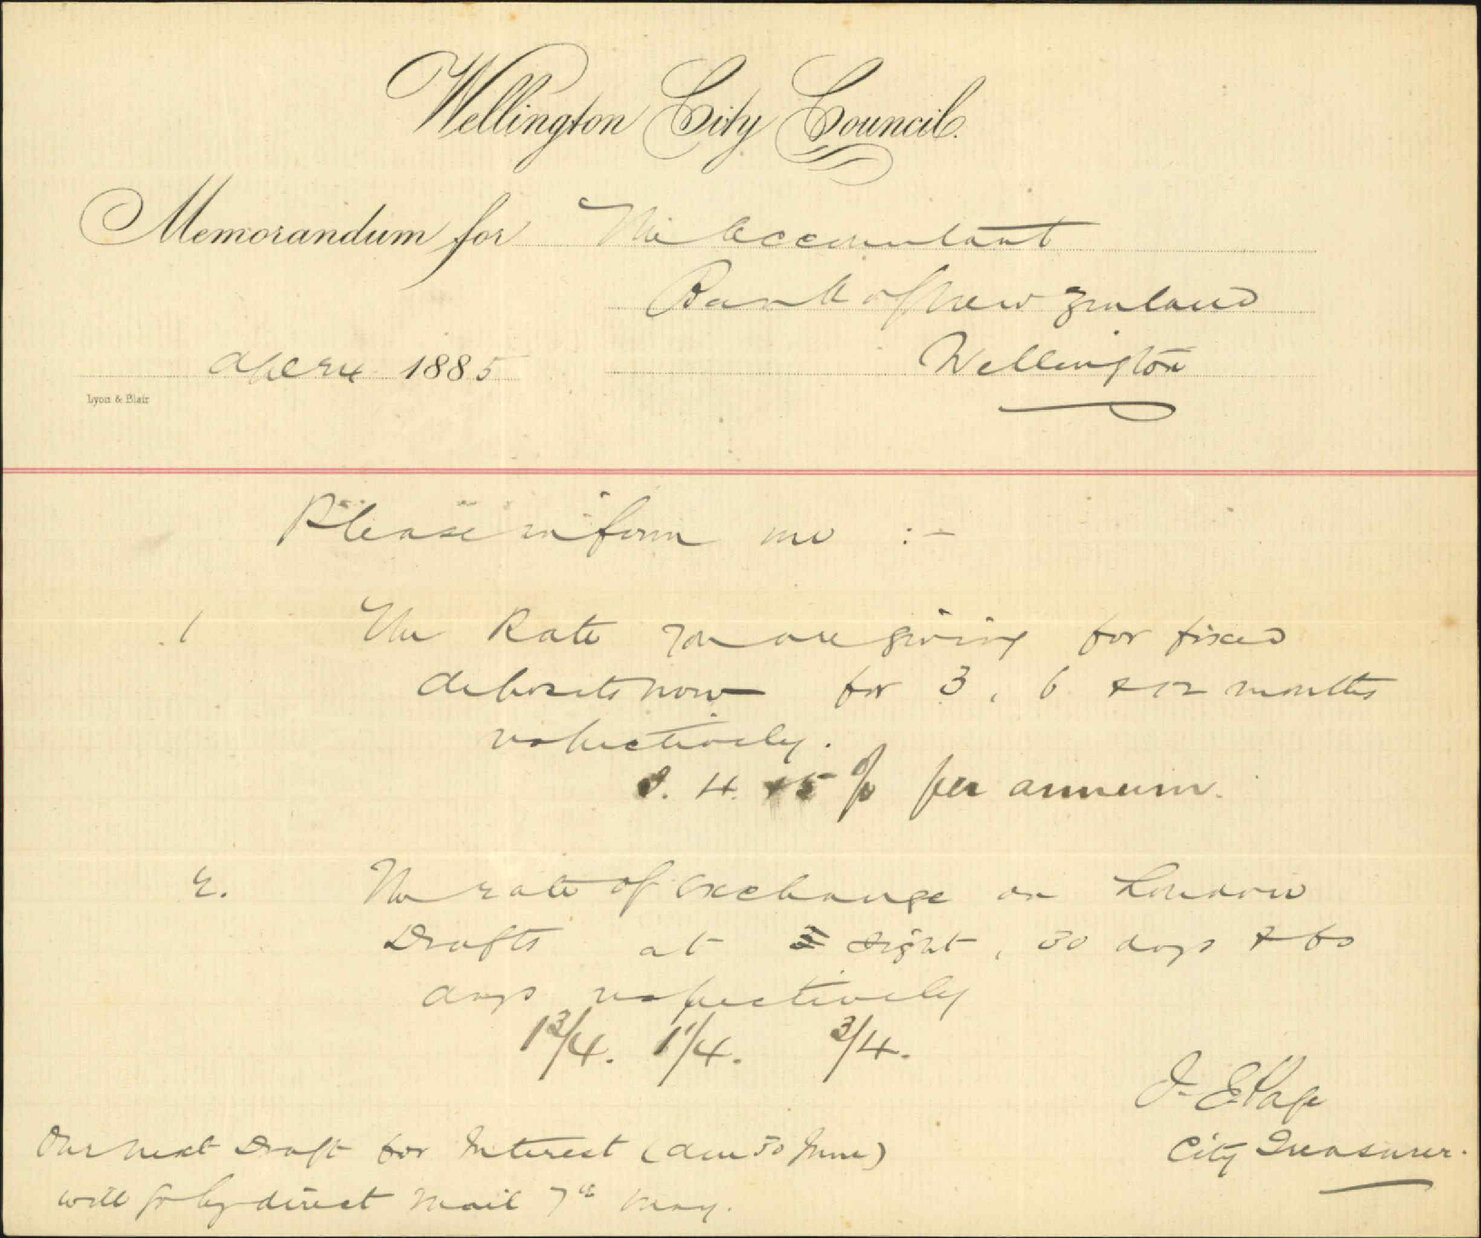 Wellington City Council.
Memorandum for The Accountant
Bank of New Zealand
Apl 24 1885 Wellington
Lyon & Blair
Please inform me :-
1 The Rate you are giving for fixed
deposits now for 3, 6 & 12 months
respectively.
3. 4. & 5 % per annum.
2. The rate of exchange on London
Drafts at sight, 30 days & 60
days respectively
1 3/4. 1 1/4. 3/4.
J. E. Page
City Treasurer.
Our next Draft for Interest (due 30 June)
will go by direct Mail 7th May.